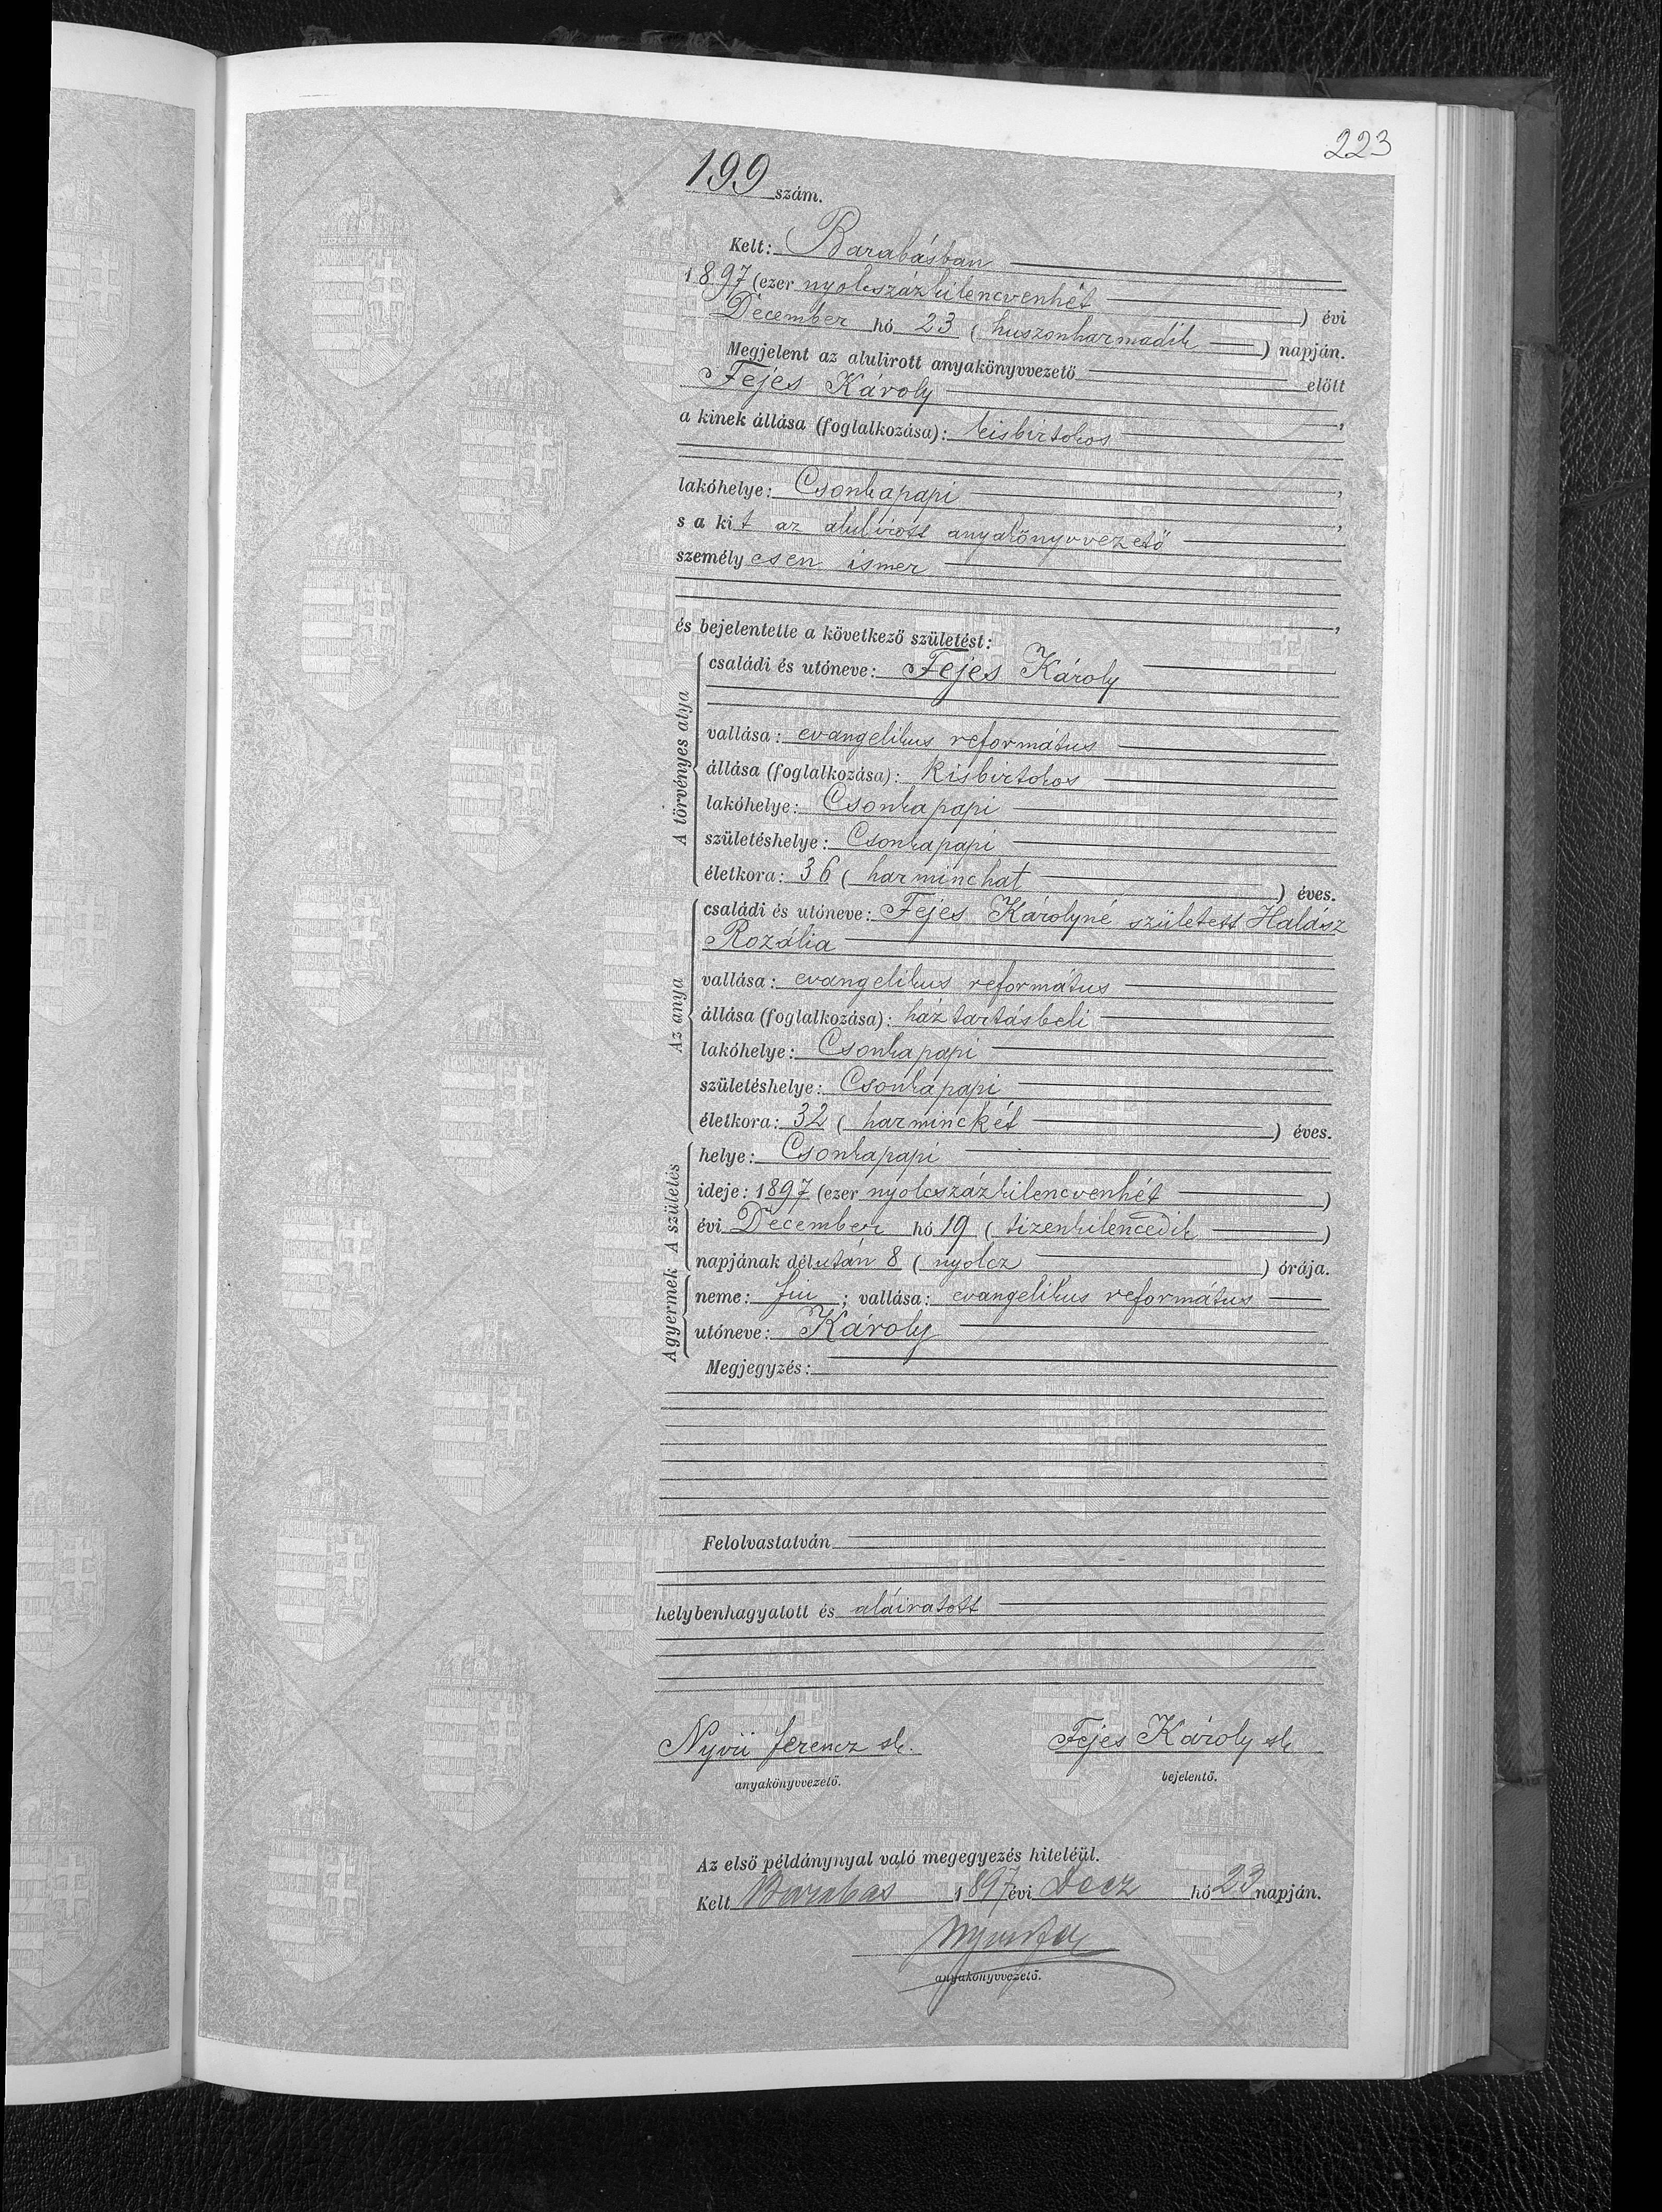 223
199 szám.
Kelt: Barabásban
1897 (ezer nyolczszázkilenczvenhét) évi
December hó 23 (huszonharmadik) napján.
Megjelent az alulirott anyakönyvvezető előtt
Fejes Károly,
a kinek állása (foglalkozása): kisbirtokos
lakóhelye: Csonkapapi,
s a kit az alulirott anyakönyvvezető
személyesen ismer
és bejelentette a következő születést:
A törvényes atya
családi és utóneve: Fejes Károly
vallása: evangelikus református
állása (foglalkozása): Kisbirtokos
lakóhelye: Csonkapapi
születéshelye: Csonkapapi
életkora: 36 (harminchat) éves.
Az anya
családi és utóneve: Fejes Károlyné született Halász
Rozália
vallása: evangelikus református
állása (foglalkozása): háztartásbeli
lakóhelye: Csonkapapi
születéshelye: Csonkapapi
életkora: 32 (harminckét) éves.
A születés
helye: Csonkapapi
ideje: 1897 (ezer nyolczszázkilenczvenhét)
évi December hó 19 (tizenkilencedik)
napjának délután 8 (nyolcz) órája.
A gyermek
neme: fiu; vallása: evangelikus református
utóneve: Károly
Megjegyzés:
Felolvastatván
helybenhagyatott és aláiratott
Nyiri Ferencz sk. Fejes Károly sk
anyakönyvvezető. bejelentő.
Az első példánynyal való megegyezés hiteléül.
Kelt Barabás 1897 évi Decz hó 23 napján.
anyakönyvvezető.